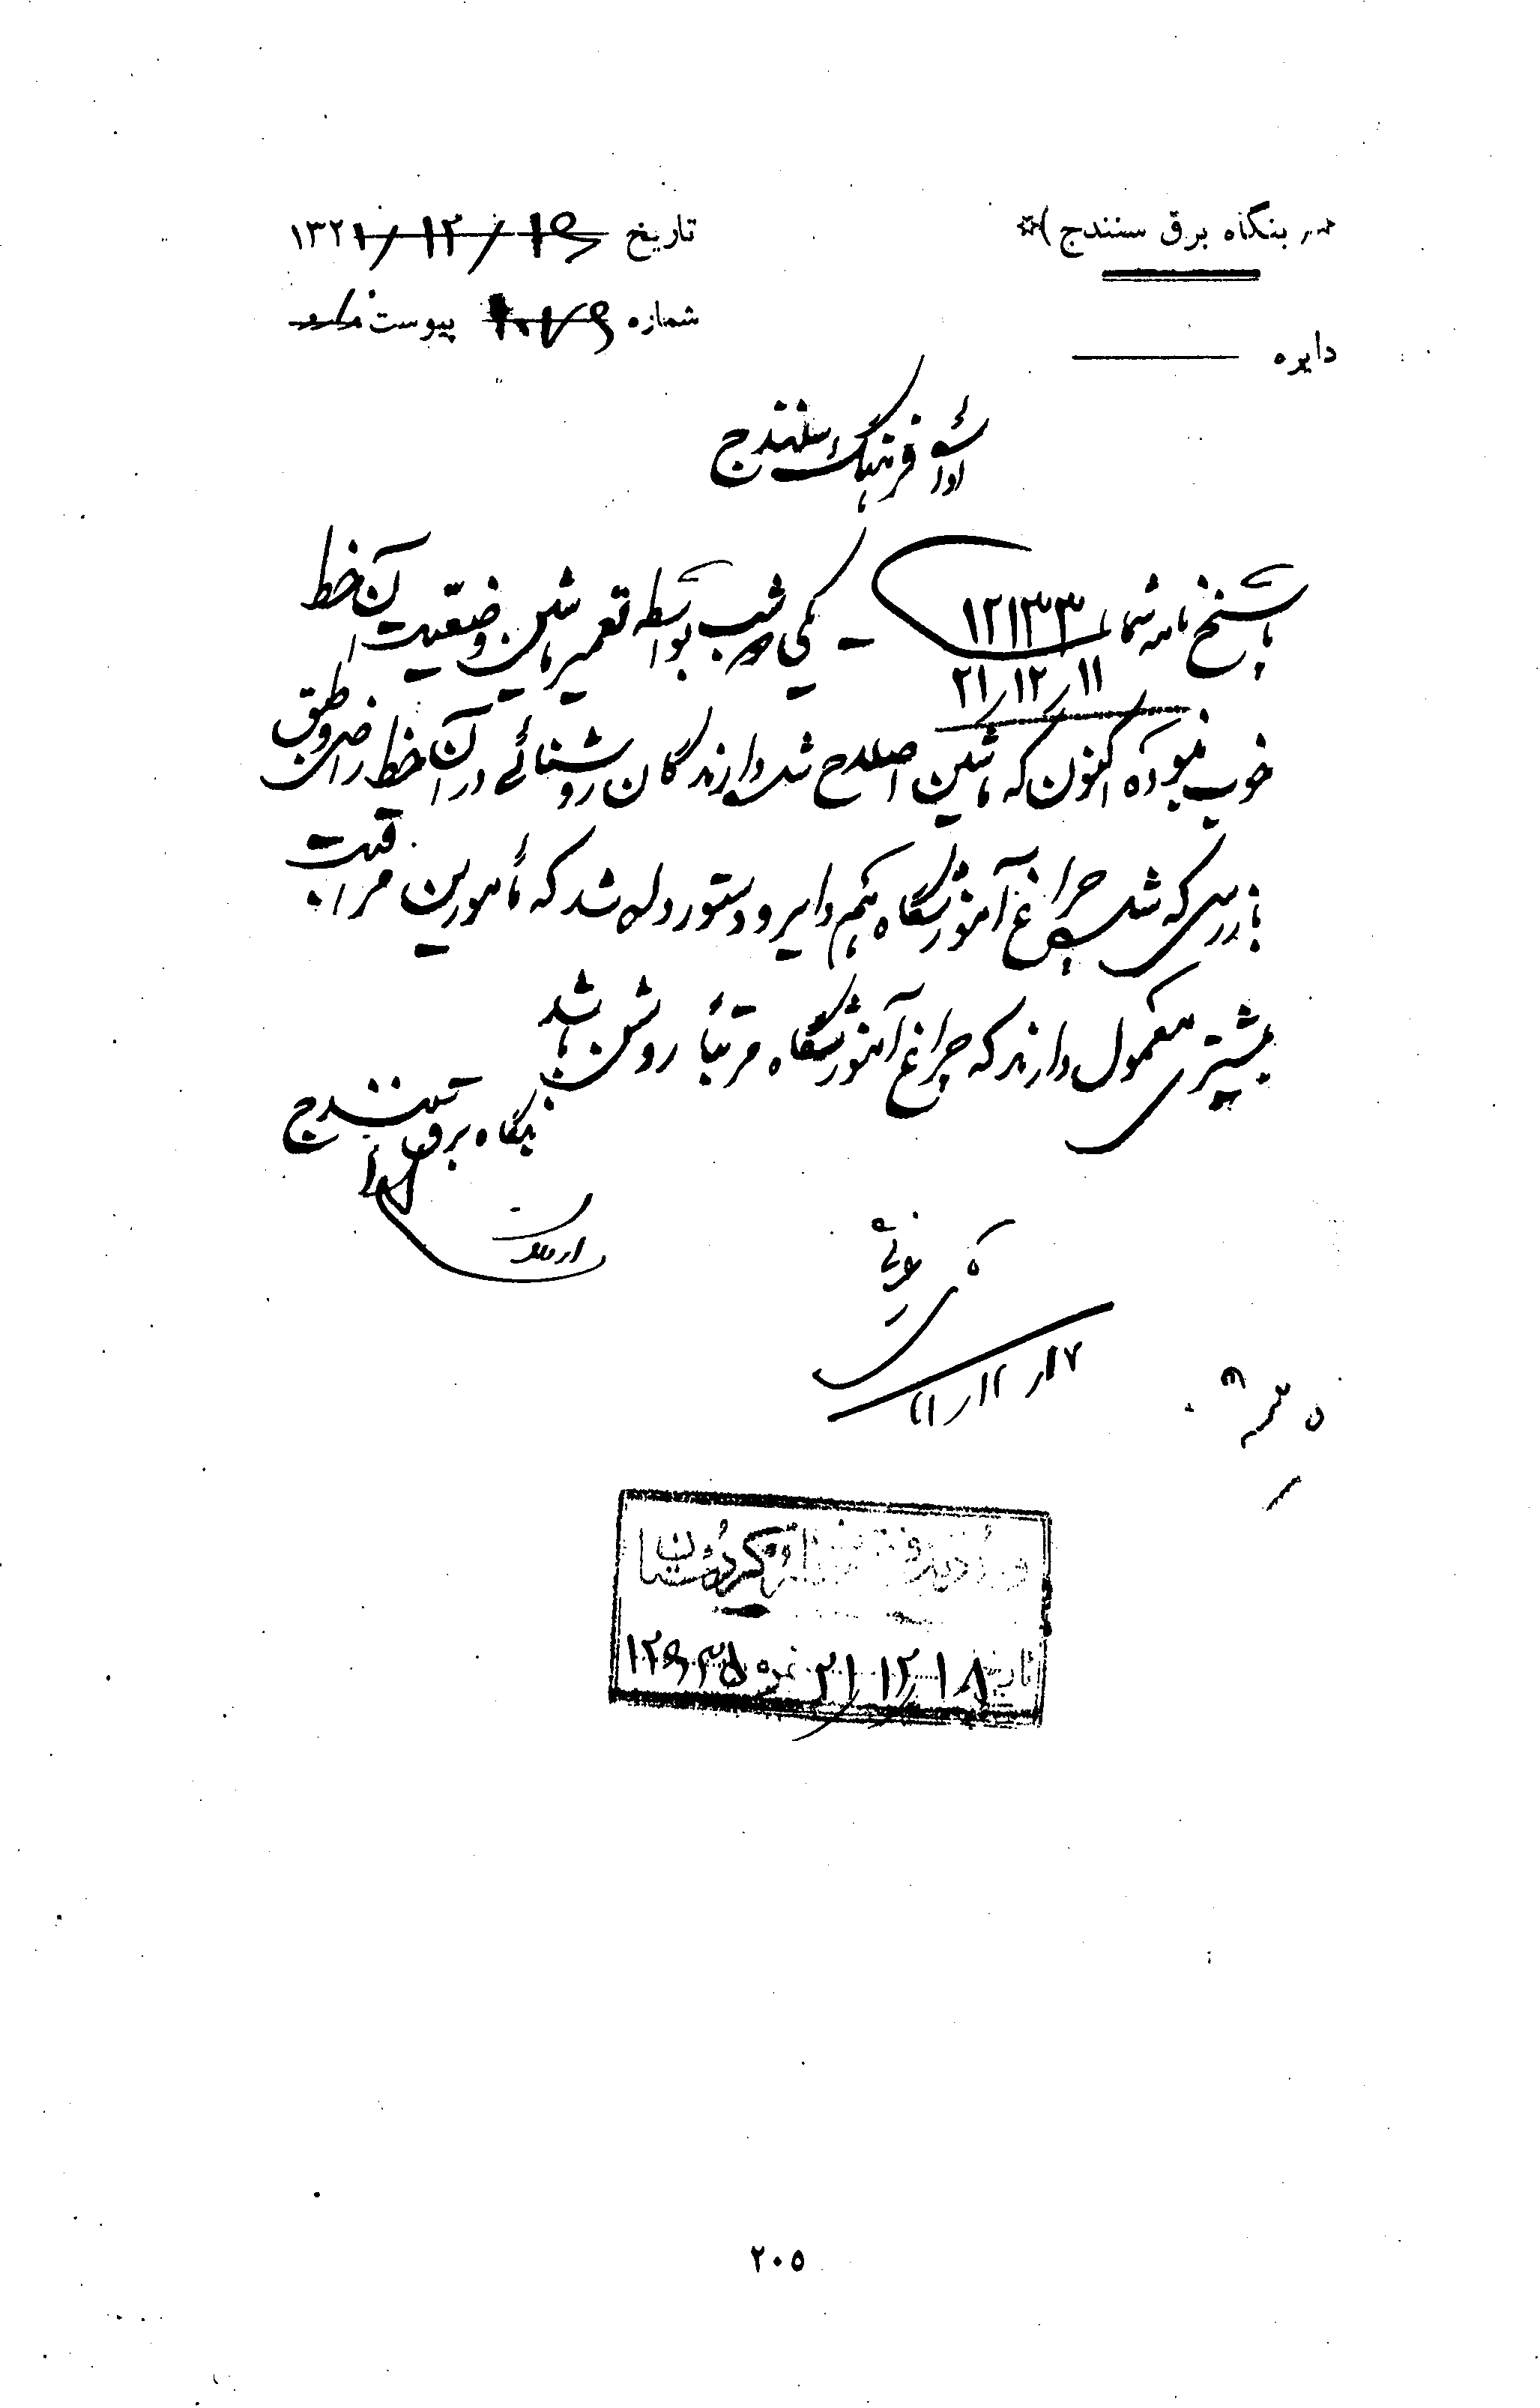 بنگاه برق سنندج
تاریخ ۱۶ / ۱۲ / ۱۳۲۱
شماره ۱۰۷۶ پیوست ندارد
دایره
اداره فرهنگ سنندج
پاسخ نامه شماره ۱۲۱۳۳ یکی دو شب بواسطه تعمیر ماشین وضعیت آن خط
۲۱/۱۲/۱۱
خوب نبوده اکنون که ماشین اصلاح شد دارندگان روشنائی در آن خط راضی و طبق
بازرسی که شد چراغ آموزشگاه هم دایر و دستور داده شد که مأمورین مراقبت
بیشتری معمول دارند که چراغ آموزشگاه مرتباً روشن باشد
بنگاه برق سنندج
۲۱/۱۲/۱۷
کردستان
تاریخ ۲۱/۱۲/۱۸ نمره ۱۲۶۳۵
۲۰۵